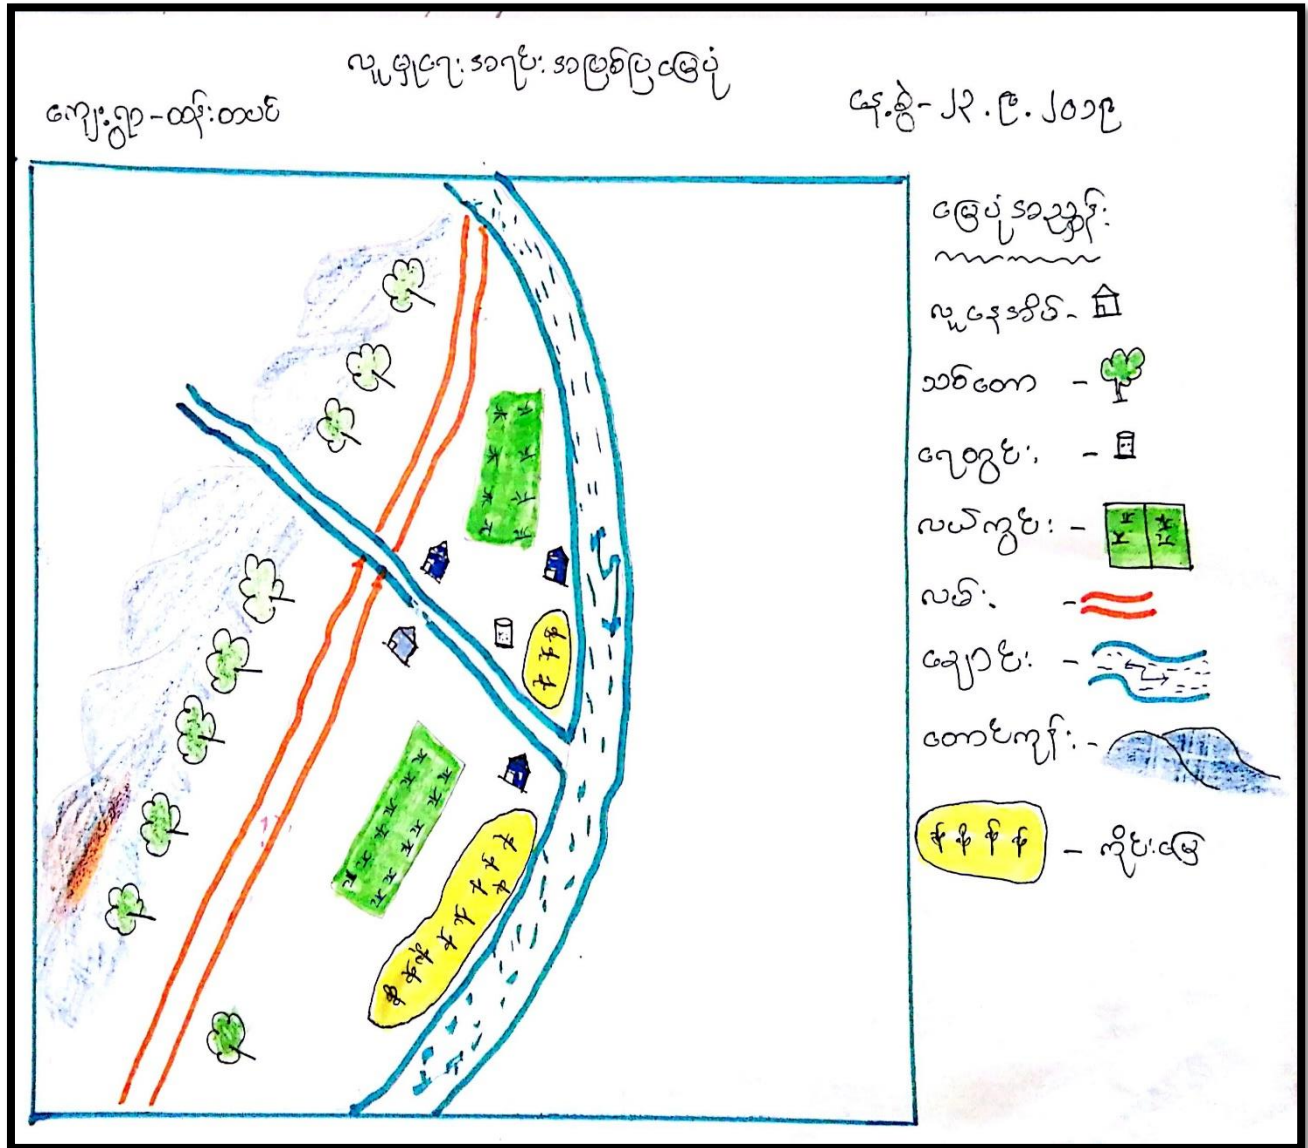 လူမှုရေးအရင်းအမြစ်ပြမြေပုံ
ကျေးရွာ-ထန်းတပင်
နေ့စွဲ-၂၃.၉.၂၀၁၉
မြေပုံအညွှန်း
လူနေအိမ်-
သစ်တော -
ရေတွင်း -
လယ်ကွင်း -
လမ်း -
ချောင်း -
တောင်ကုန်း -
- ကိုင်းမြေ